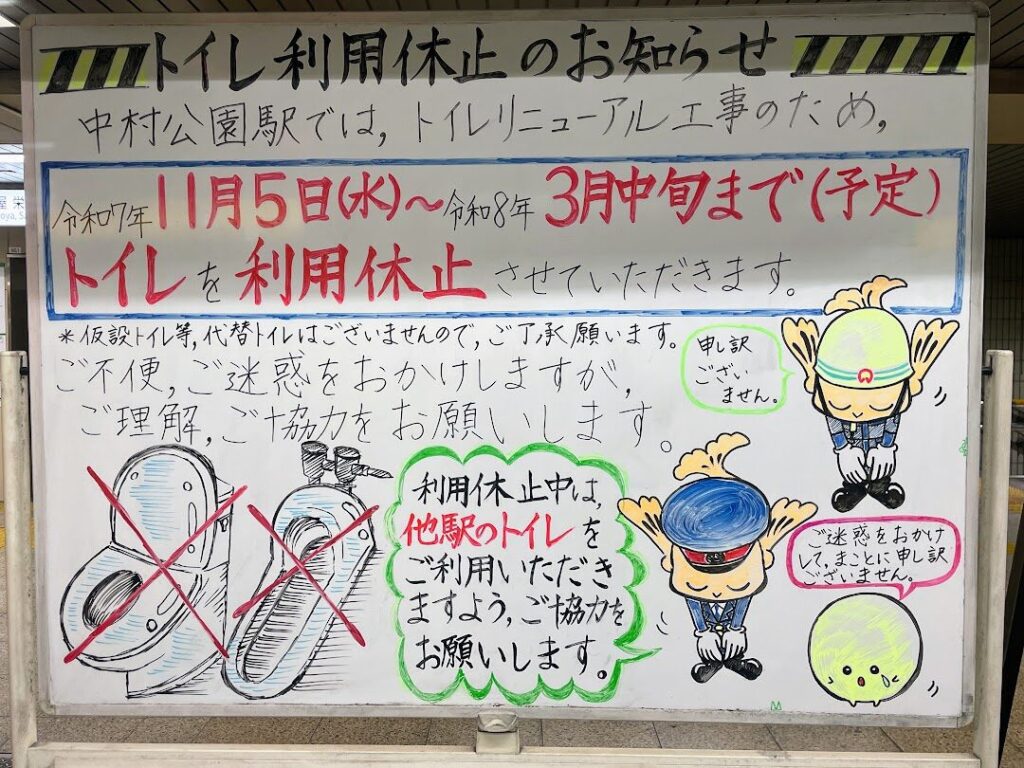 トイレ利用休止のお知らせ
中村公園駅では,トイレリニューアル工事のため,
令和7年11月5日(水)~令和8年3月中旬まで(予定)
トイレを利用休止させていただきます。
*仮設トイレ等,代替トイレはございませんので,ご了承願います。
ご不便,ご迷惑をおかけしますが,
ご理解,ご協力をお願いします。
申し訳
ござい
ません。
利用休止中は,
他駅のトイレを
ご利用いただき
ますよう,ご協力を
お願いします。
ご迷惑をおかけ
して,まことに申し訳
ございません。
屋 栄
oya, Sa